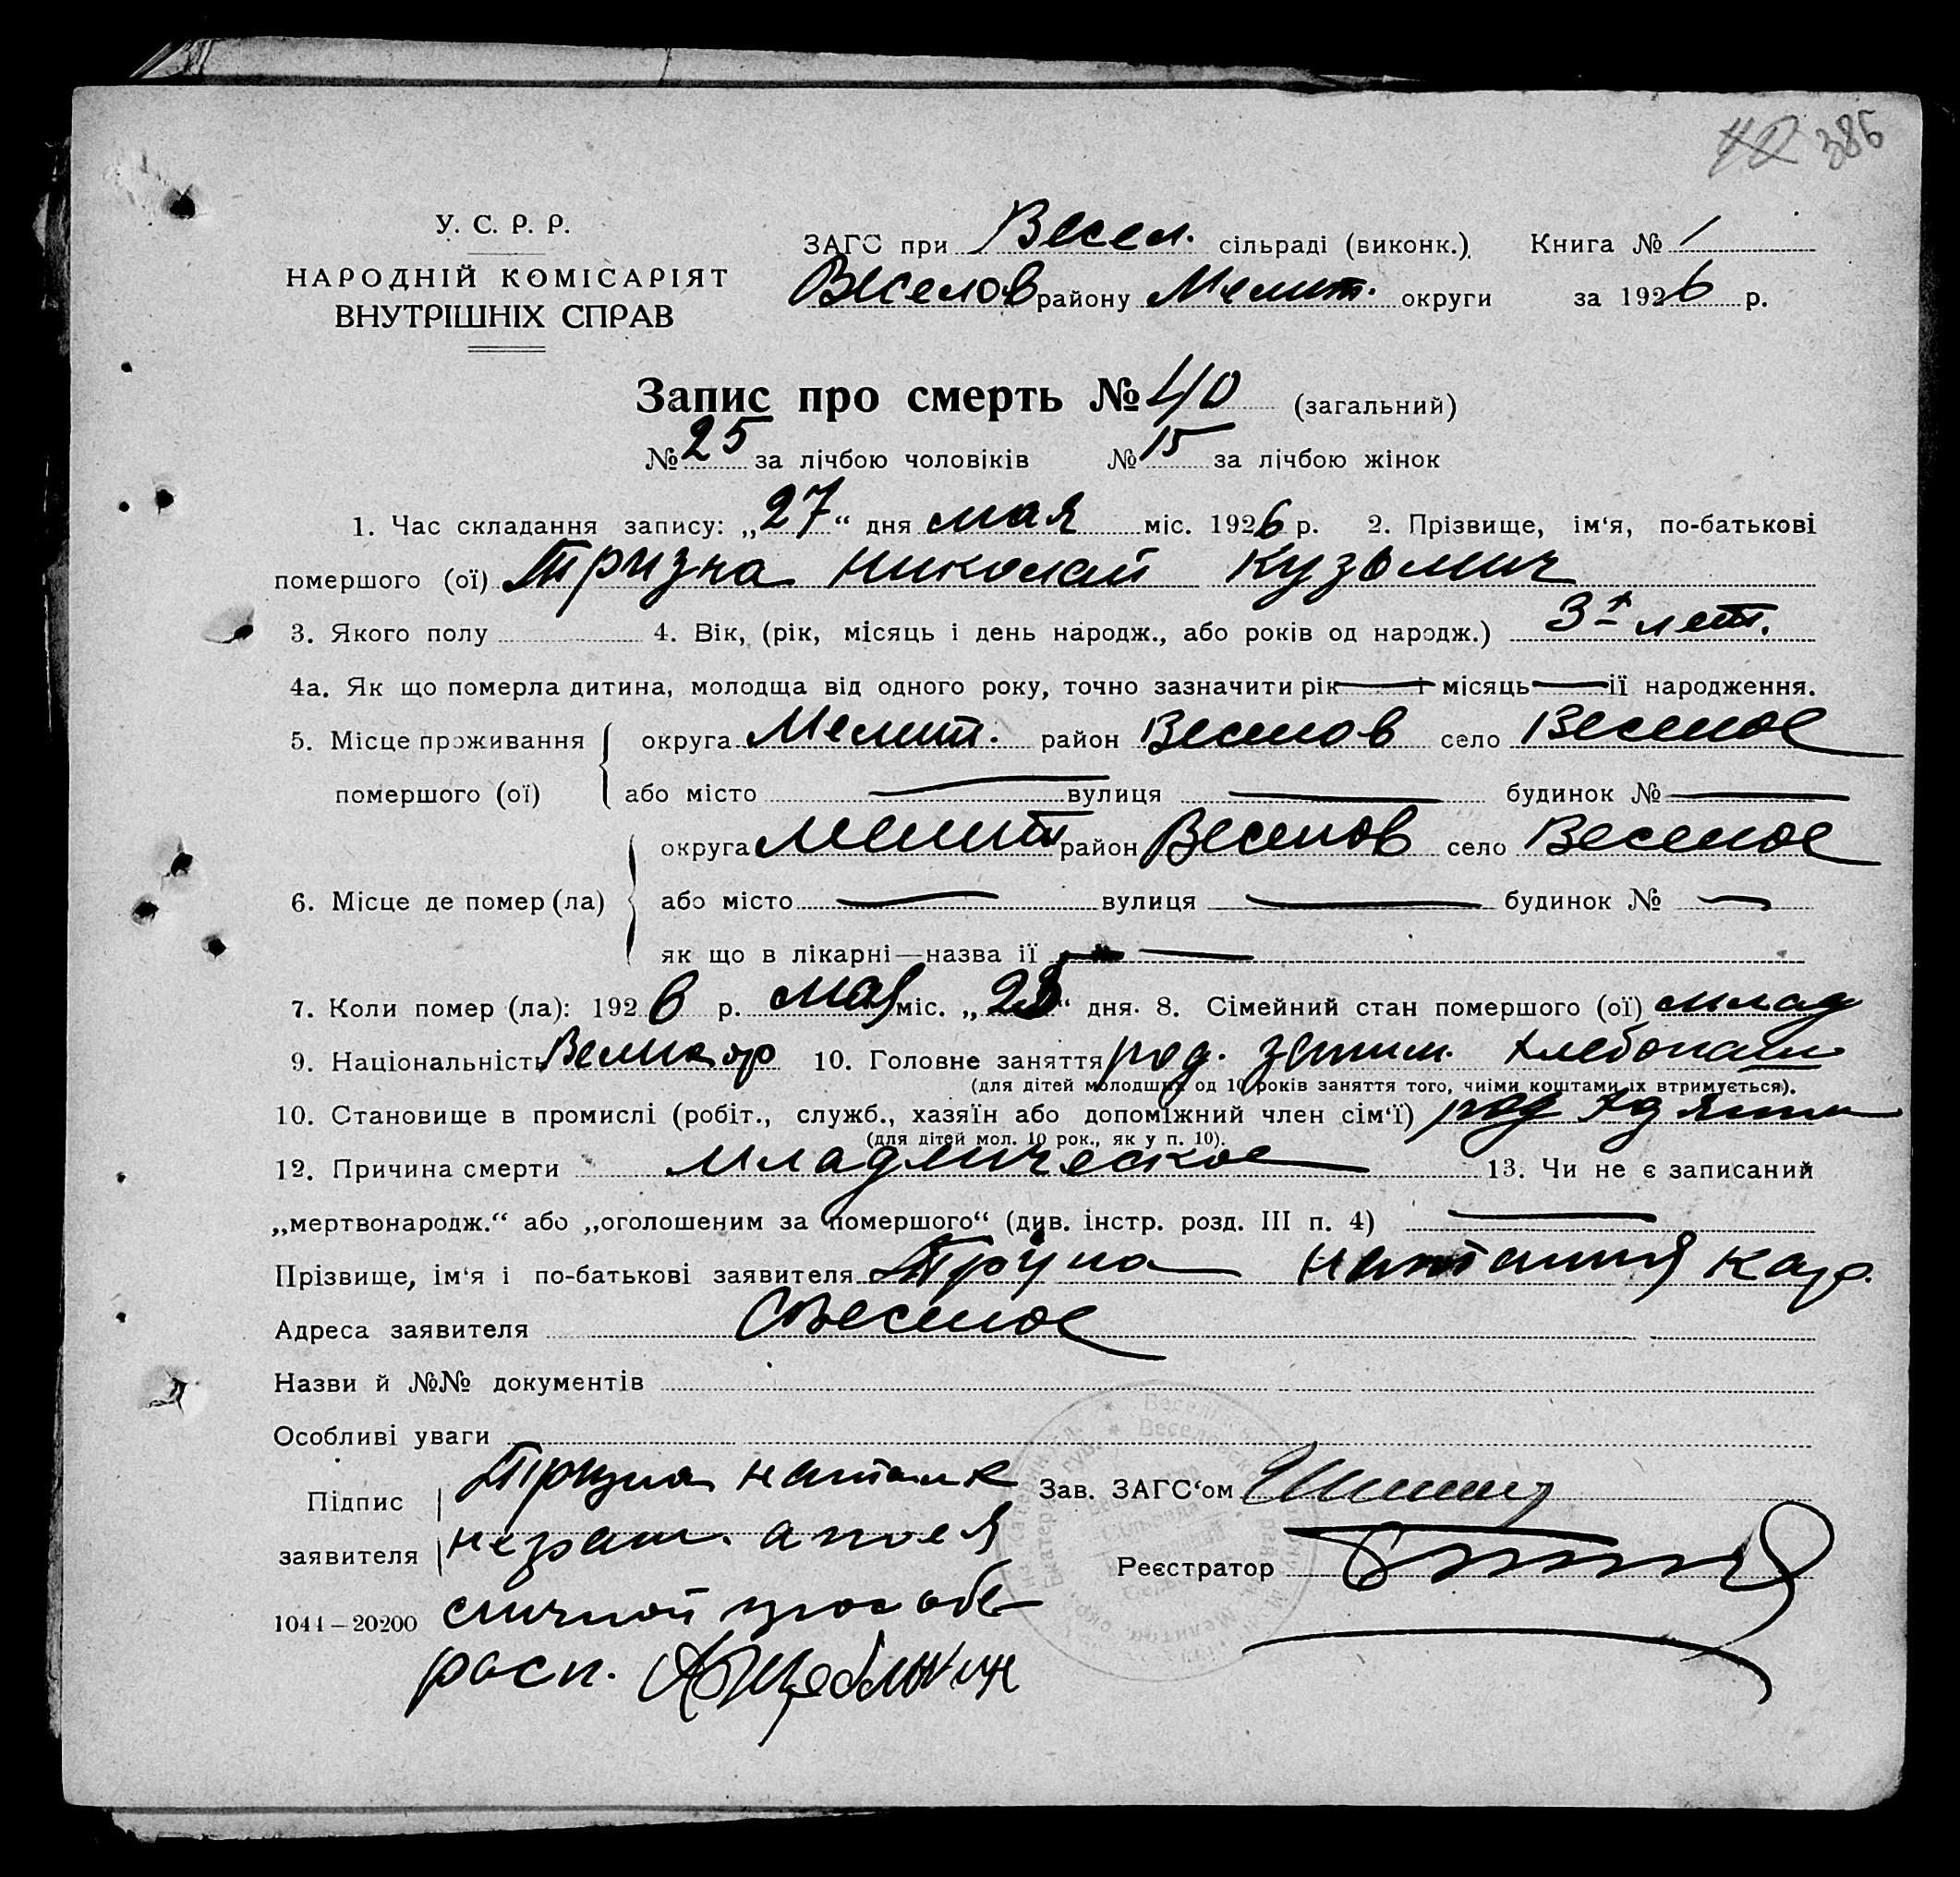 42 386
У. С. Р. Р.
НАРОДНІЙ КОМІСАРІЯТ
ВНУТРІШНІХ СПРАВ
ЗАГС при Весел. сільраді (виконк.). Книга № 1
Веселов району Мелит. округи за 1926 р.
Запис про смерть № 40 (загальний)
№ 25 за лічбою чоловіків № 15 за лічбою жінок
1. Час складання запису: „27“ дня мая міс. 1926 р. 2. Прізвище, ім‘я, по-батькові
помершого (ої) Тризна Николай Кузьмич
3. Якого полу 4. Вік, (рік, місяць і день народж., або років од народж.) 3х лет.
4а. Як що померла дитина, молодща від одного року, точно зазначити рік — і місяць — її народження.
5. Місце проживання помершого (ої) округа Мелит. район Веселов село Веселое
або місто — вулиця — будинок № —
6. Місце де помер (ла) округа Мелит район Веселов село Веселое
або місто — вулиця — будинок № —
як що в лікарні—назва її —
7. Коли помер (ла): 1926 р. мая міс. „ “ дня. 8. Сімейний стан помершого (ої) млад
9. Національність Великор 10. Головне заняття род. заним. хлебопаш
(для дітей молодших од 10 років заняття того, чиїми коштами їх втримується).
10. Становище в промислі (робіт., служб., хазяїн або допоміжний член сім‘ї) род
(для дітей мол. 10 рок., як у п. 10).
12. Причина смерти младмическое 13. Чи не є записаний
„мертвонародж.“ або „оголошеним за помершого“ (див. інстр. розд. III п. 4) —
Прізвище, ім‘я і по-батькові заявителя Тризна Наталия Кар.
Адреса заявителя с Веселое
Назви й №№ документів
Особливі уваги
Підпис заявителя Тризна Наталия
Зав. ЗАГС‘ом
неграм. а по ея
Реєстратор
1044—20200 личной прозьбе
расп.